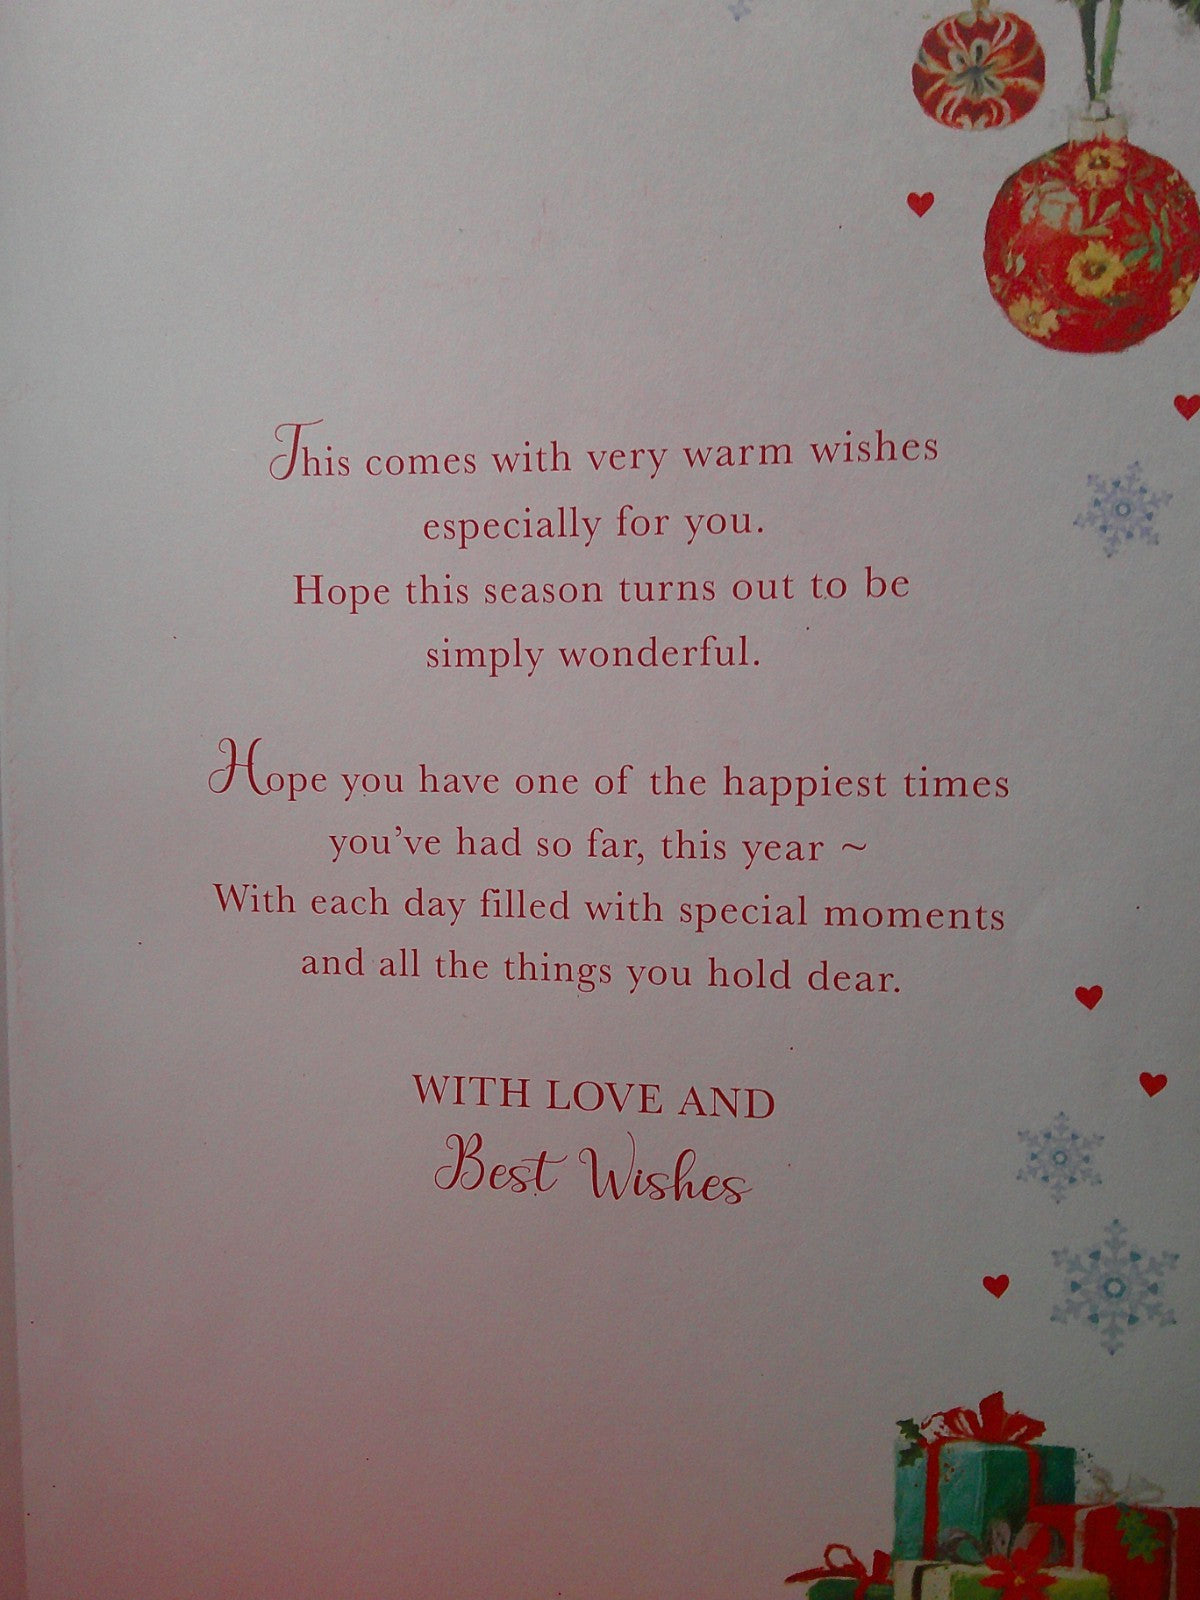 This comes with very warm wishes
especially for you.
Hope this season turns out to be
simply wonderful.
Hope you have one of the happiest times
you've had so far, this year ~
With each day filled with special moments
and all the things you hold dear.
WITH LOVE AND
Best Wishes